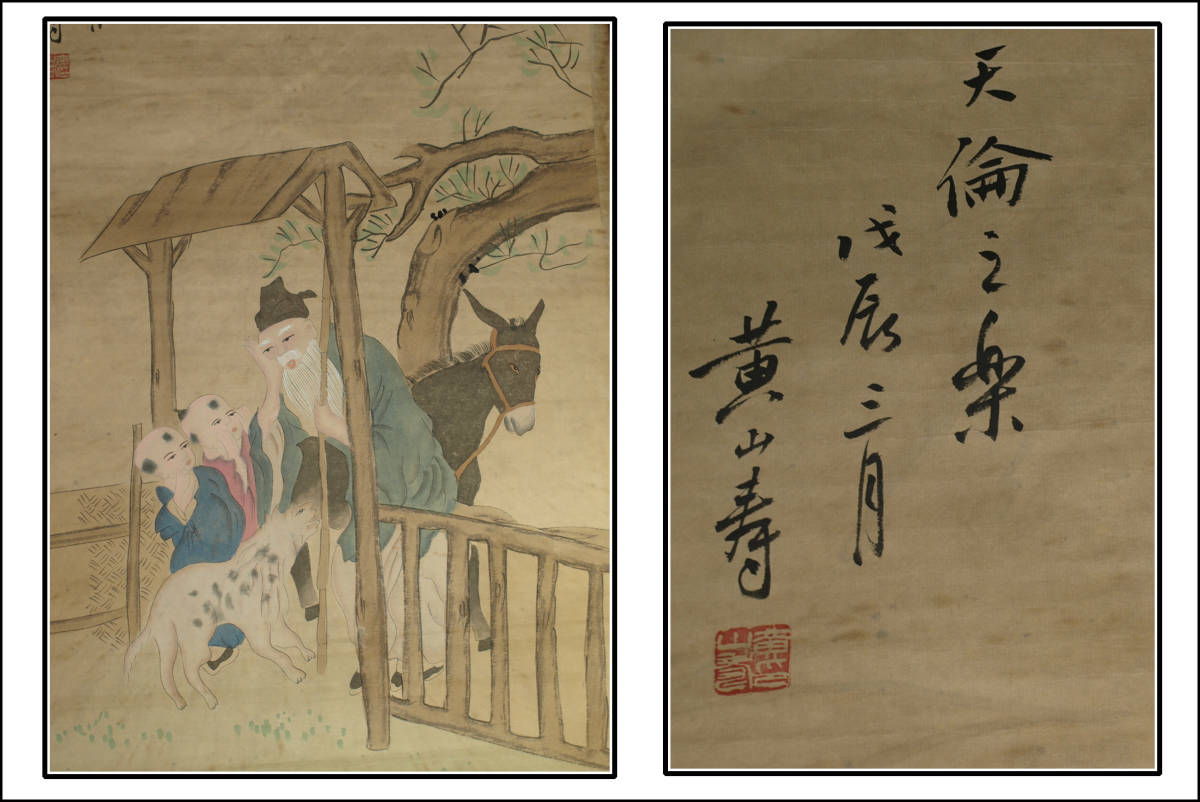 天倫之樂
戊辰三月
黄山壽